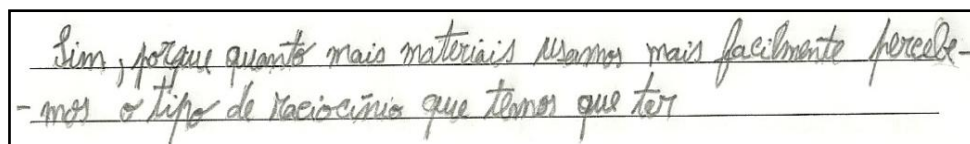 Sim, porque quanto mais materiais usamos mais facilmente percebe-
- mos o tipo de raciocínio que temos que ter